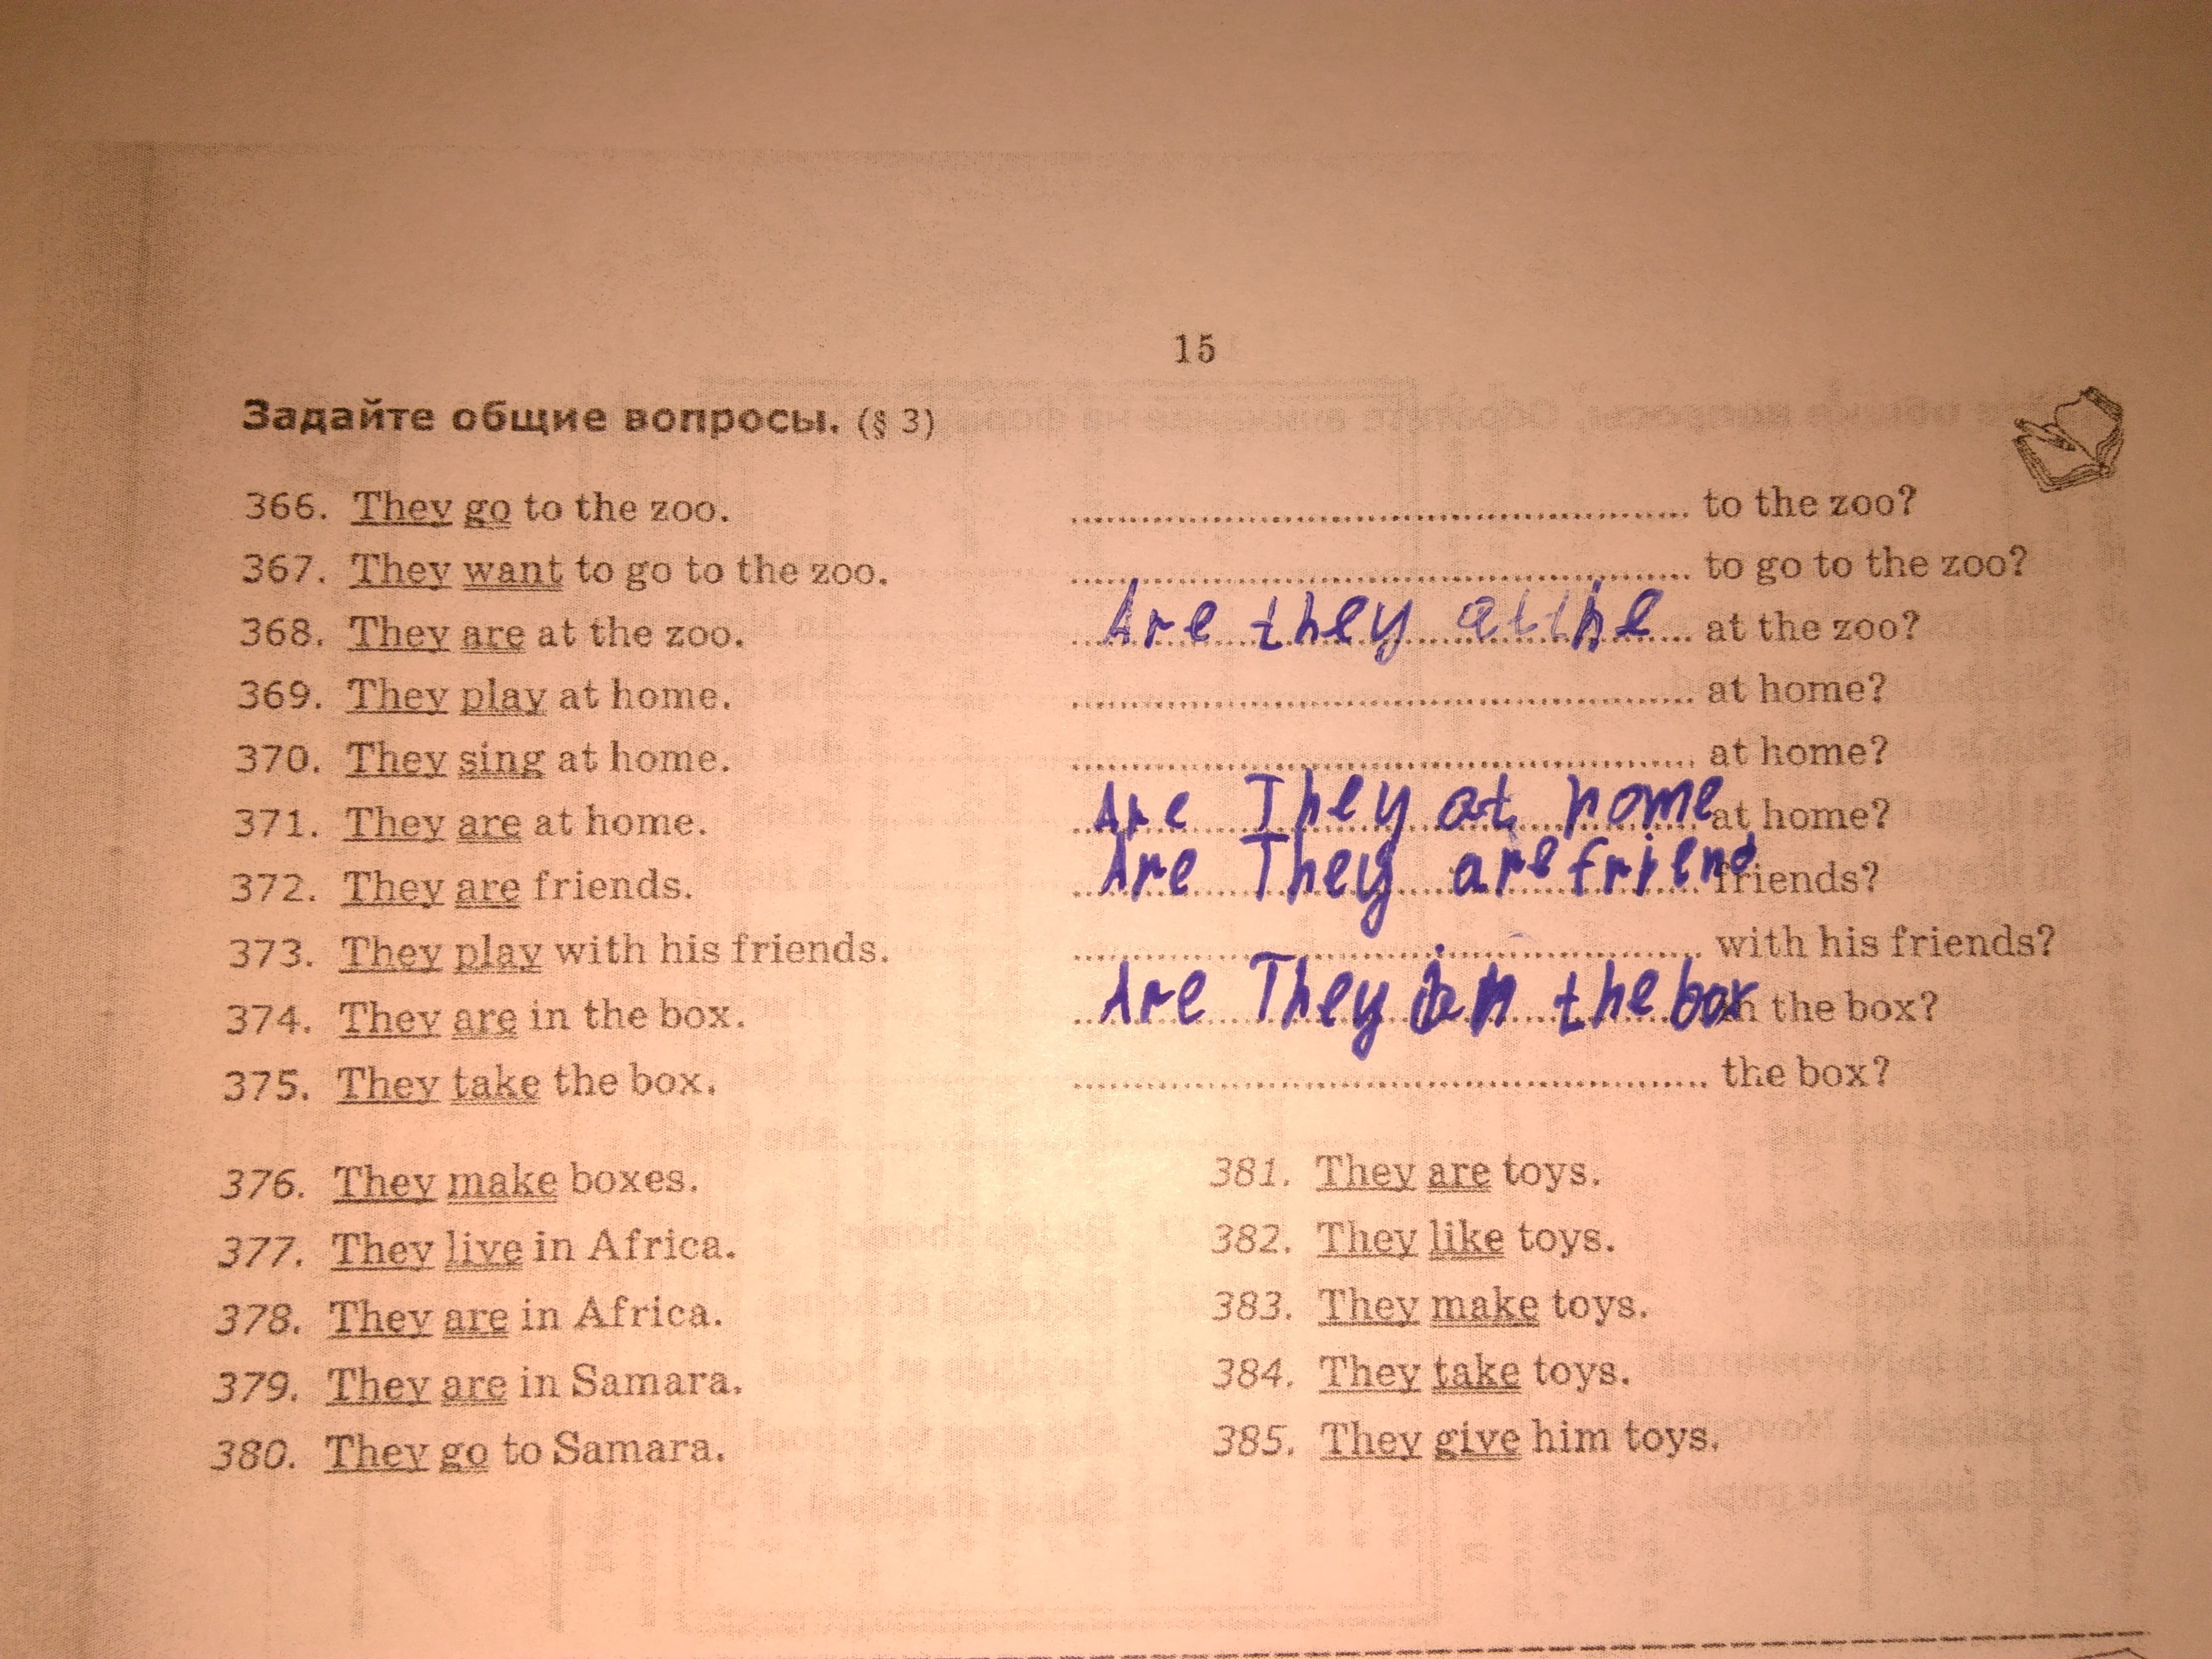 15
Задайте общие вопросы. (§ 3)
366. They go to the zoo. ........ to the zoo?
367. They want to go to the zoo. ........ to go to the zoo?
368. They are at the zoo. Are they at the at the zoo?
369. They play at home. ........ at home?
370. They sing at home. ........ at home?
371. They are at home. Are They at home at home?
372. They are friends. Are They are friend friends?
373. They play with his friends. ........ with his friends?
374. They are in the box. Are They in the box in the box?
375. They take the box. ........ the box?
376. They make boxes.
377. They live in Africa.
378. They are in Africa.
379. They are in Samara.
380. They go to Samara.
381. They are toys.
382. They like toys.
383. They make toys.
384. They take toys.
385. They give him toys.